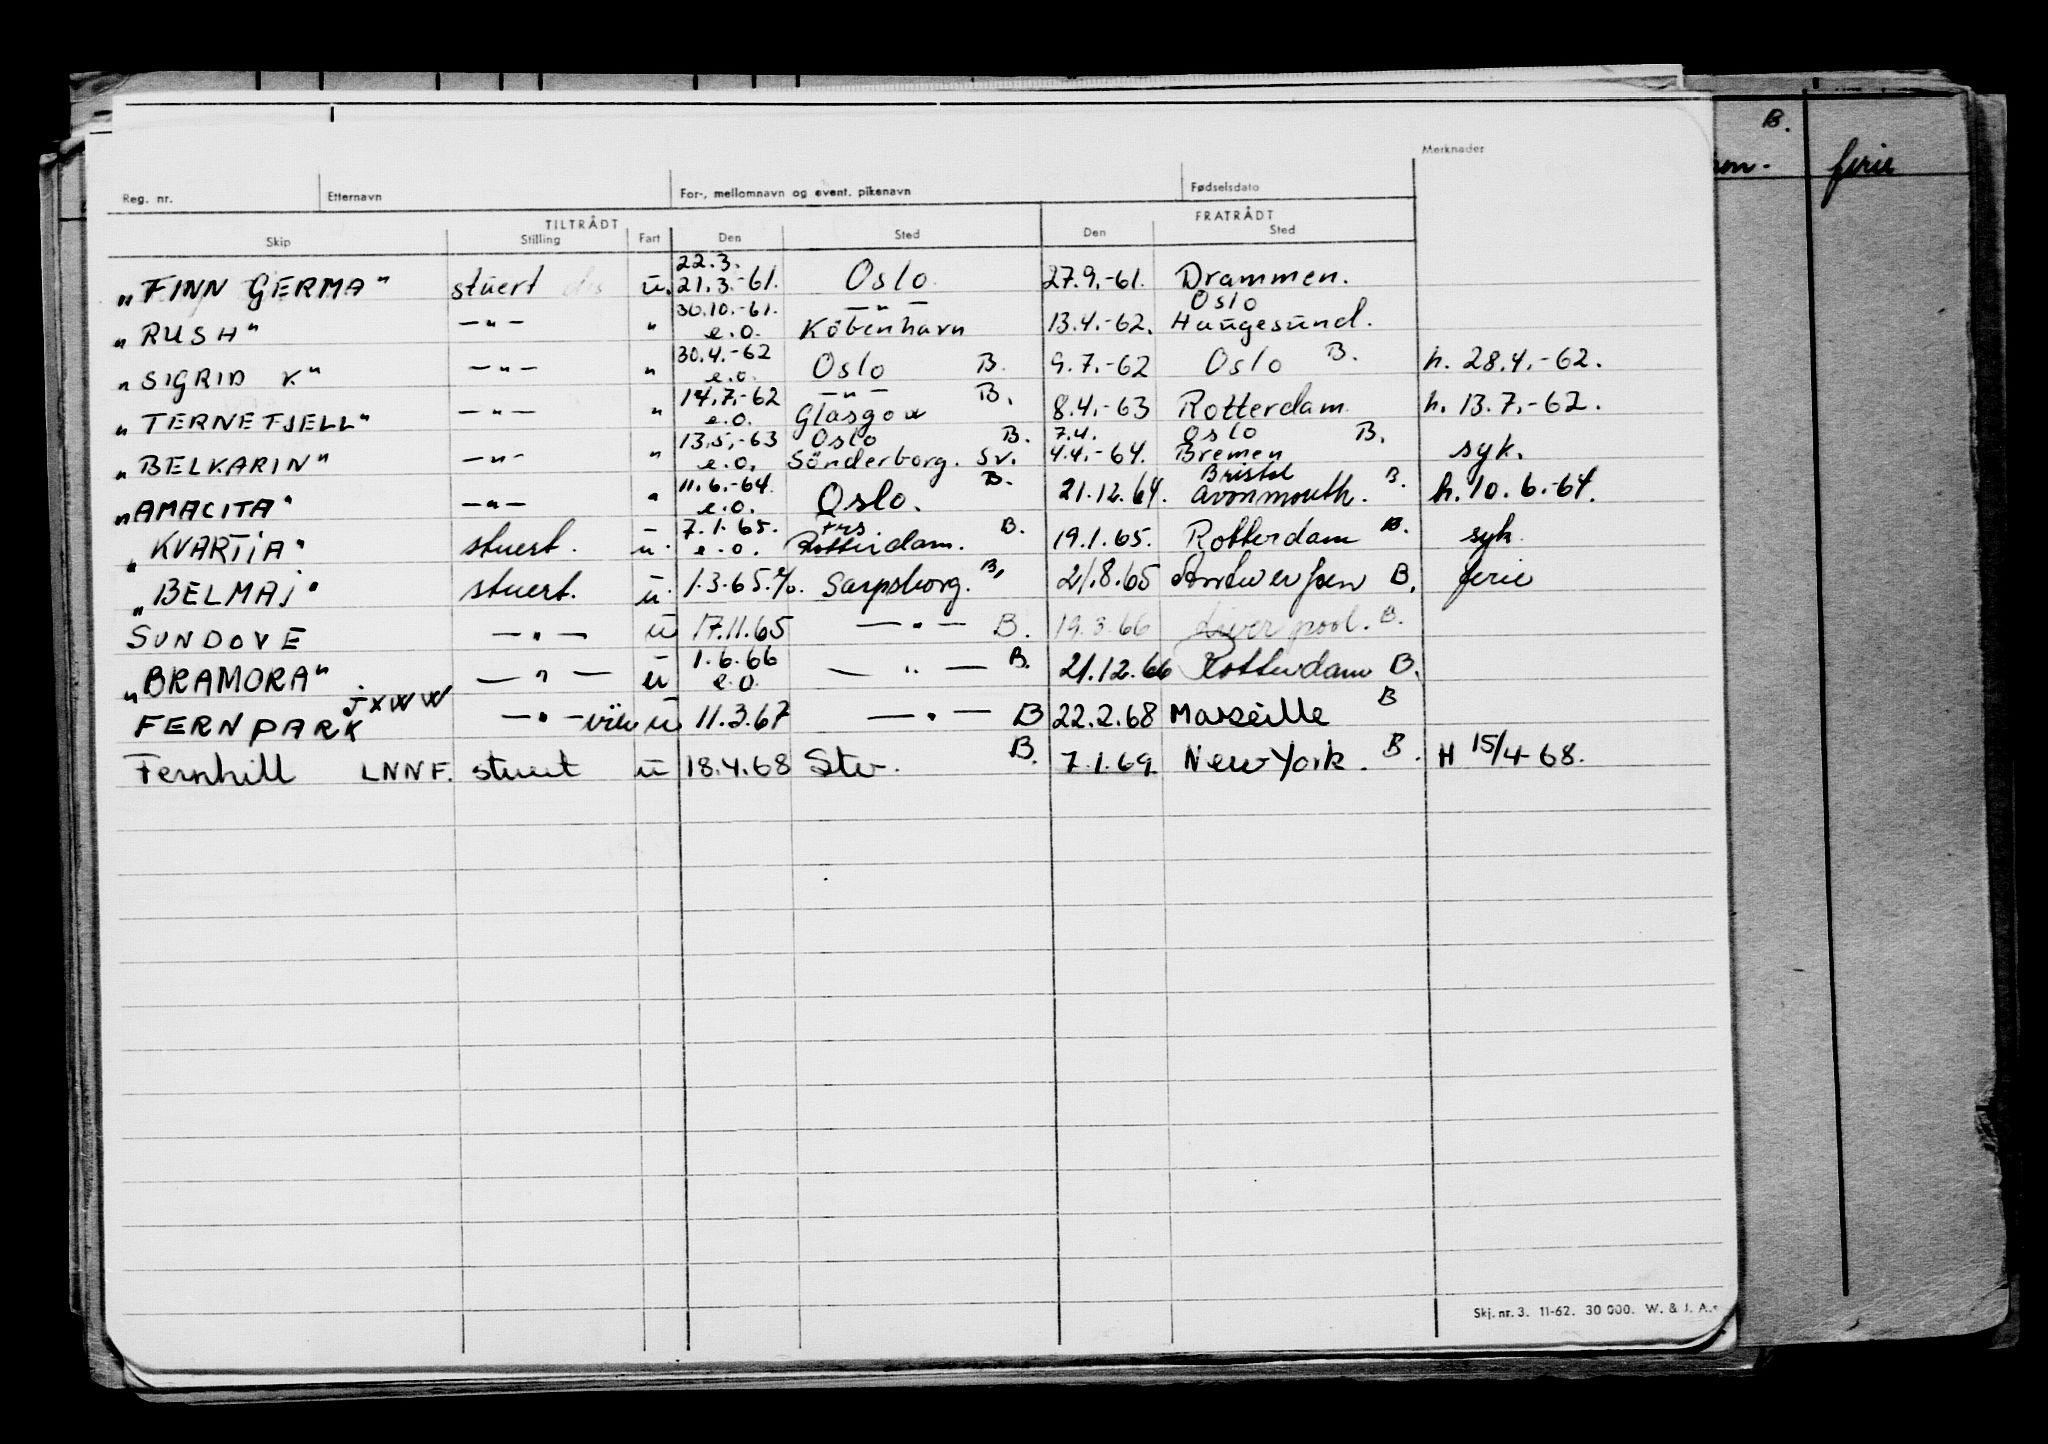 B.
ferie
Merknader
Reg. nr. Etternavn For-, mellomnavn og event. pikenavn Fødselsdato
TILTRÅDT FRATRÅDT
Skip Stilling Fart Den Sted Den Sted
22.3.
„FINN GERMA" stuert u. 21.3.-61. Oslo 27.9.-61. Drammen.
30.10.-61. —"— Oslo
„RUSH" —"— " e.o. København 13.4.-62. Haugesund.
30.4.-62
„SIGRID K" —"— " e.o. Oslo B. 9.7.-62 Oslo B. h. 28.4.-62.
14.7.-62 —"— B.
„TERNEFJELL" —"— " e.o. Glasgow 8.4.-63 Rotterdam h. 13.7.-62.
13.5.-63 Oslo B. 7.4. Oslo B.
„BELKARIN" —"— " e.o. Sönderborg. Sv. 4.4.-64. Bremen syk.
11.6.-64. B. Bristol
„AMACITA" —"— " e.o. Oslo. 21.12.64. Avonmouth. B. h. 10.6.-64.
7.1.65. trs B.
„KVARTIA" stuert. u. e.o. Rotterdam. 19.1.65. Rotterdam B. syk.
„BELMAJ" stuert. u. 1.3.65. Sarpsborg. B. 21.8.65 Antwerpen B. ferie
SUNDOVE —"— u 17.11.65 —"— B. 19.3.66 Liverpool. B.
1.6.66
„BRAMORA" —"— u e.o. —"— B. 21.12.66 Rotterdam B.
JXWW
FERNPARK —"— u 11.3.67 —"— B 22.2.68 Marseille B
Fernhill LNNF. stuert u 18.4.68 Stv. B. 7.1.69. New York. B. H 15/4-68.
Skj. nr. 3. 11-62. 30 000. W. & J. A.s